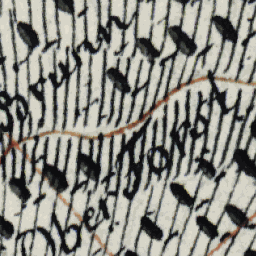 Brunn
Ober Forst